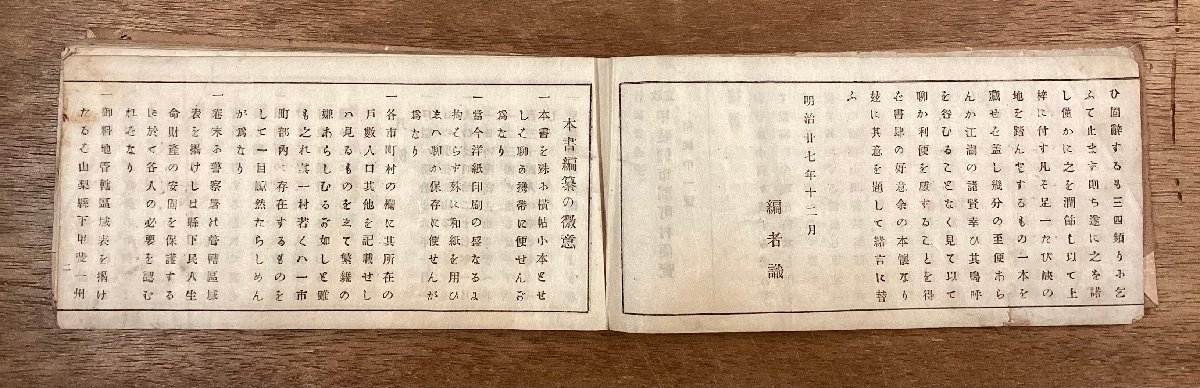 ひ固辭するも三四頻りふ乞
ふて止まず則ち遂に之を諾
し僅かに之を潤飾し以て上
梓に付す凡そ足一たび峽の
地を踏んでするもの一本を
藏せむ蓋し幾分の至便あら
んか江湖の諸賢幸ひ其嗚呼
を咎むることなく見て以て
聊か利便を感することを得
む書肆の好意余の本懐なり
玆に其意を題して緒言に替
ふ
明治廿七年十二月
編者識
本書編纂の微意
一本書を殊ふ橫帖小本とせ
しも聊る携帶に便せんお
爲なり
一當今洋紙印刷の盛なるよ
拘ハらず殊に和紙を用ひ
まハ聊か保存に便せんが
爲なり
一各市町村の欄に其所在の
戸數人口其他を記載せし
ハ見るものをまて繁雜の
嫌あらしむるお如しと雖
も之れ其一村若くハ一市
町部內ふ存在するものを
して一目瞭然たらしめん
が爲なり
一卷末ふ警察署の管轄區域
表を揭けしは縣下民人生
命財產の安固を保護する
に於て各人の必要を認む
れはなり
一御料地管轄區域表を揭け
たるも山梨縣下甲斐一州
二